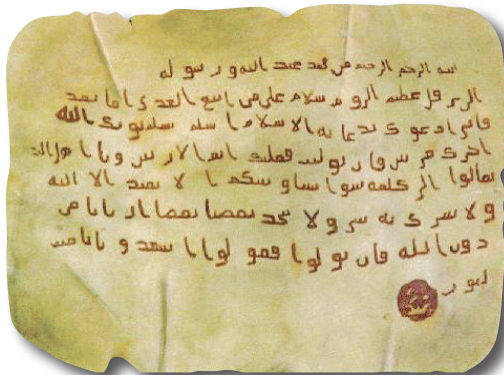 بسم الله الرحمن الرحيم من محمد عبد الله و رسو له
الى هرقل عظيم الروم سلام على من اتبع الهدى اما بعد
فانى ادعوك بدعاية الاسلام اسلم تسلم يوتك الله
اجرك مرتين فان توليت فعليك اثم الاريسين ويا اهل الكتب
تعالوا الى كلمة سوا بيننا وبينكم ا لا نعبد الا الله
ولا نشرك به شيا ولا يتخذ بعضنا بعضا اربابا من
دون الله فان تولوا فقولوا اشهدوا بانا مسـ
لمون